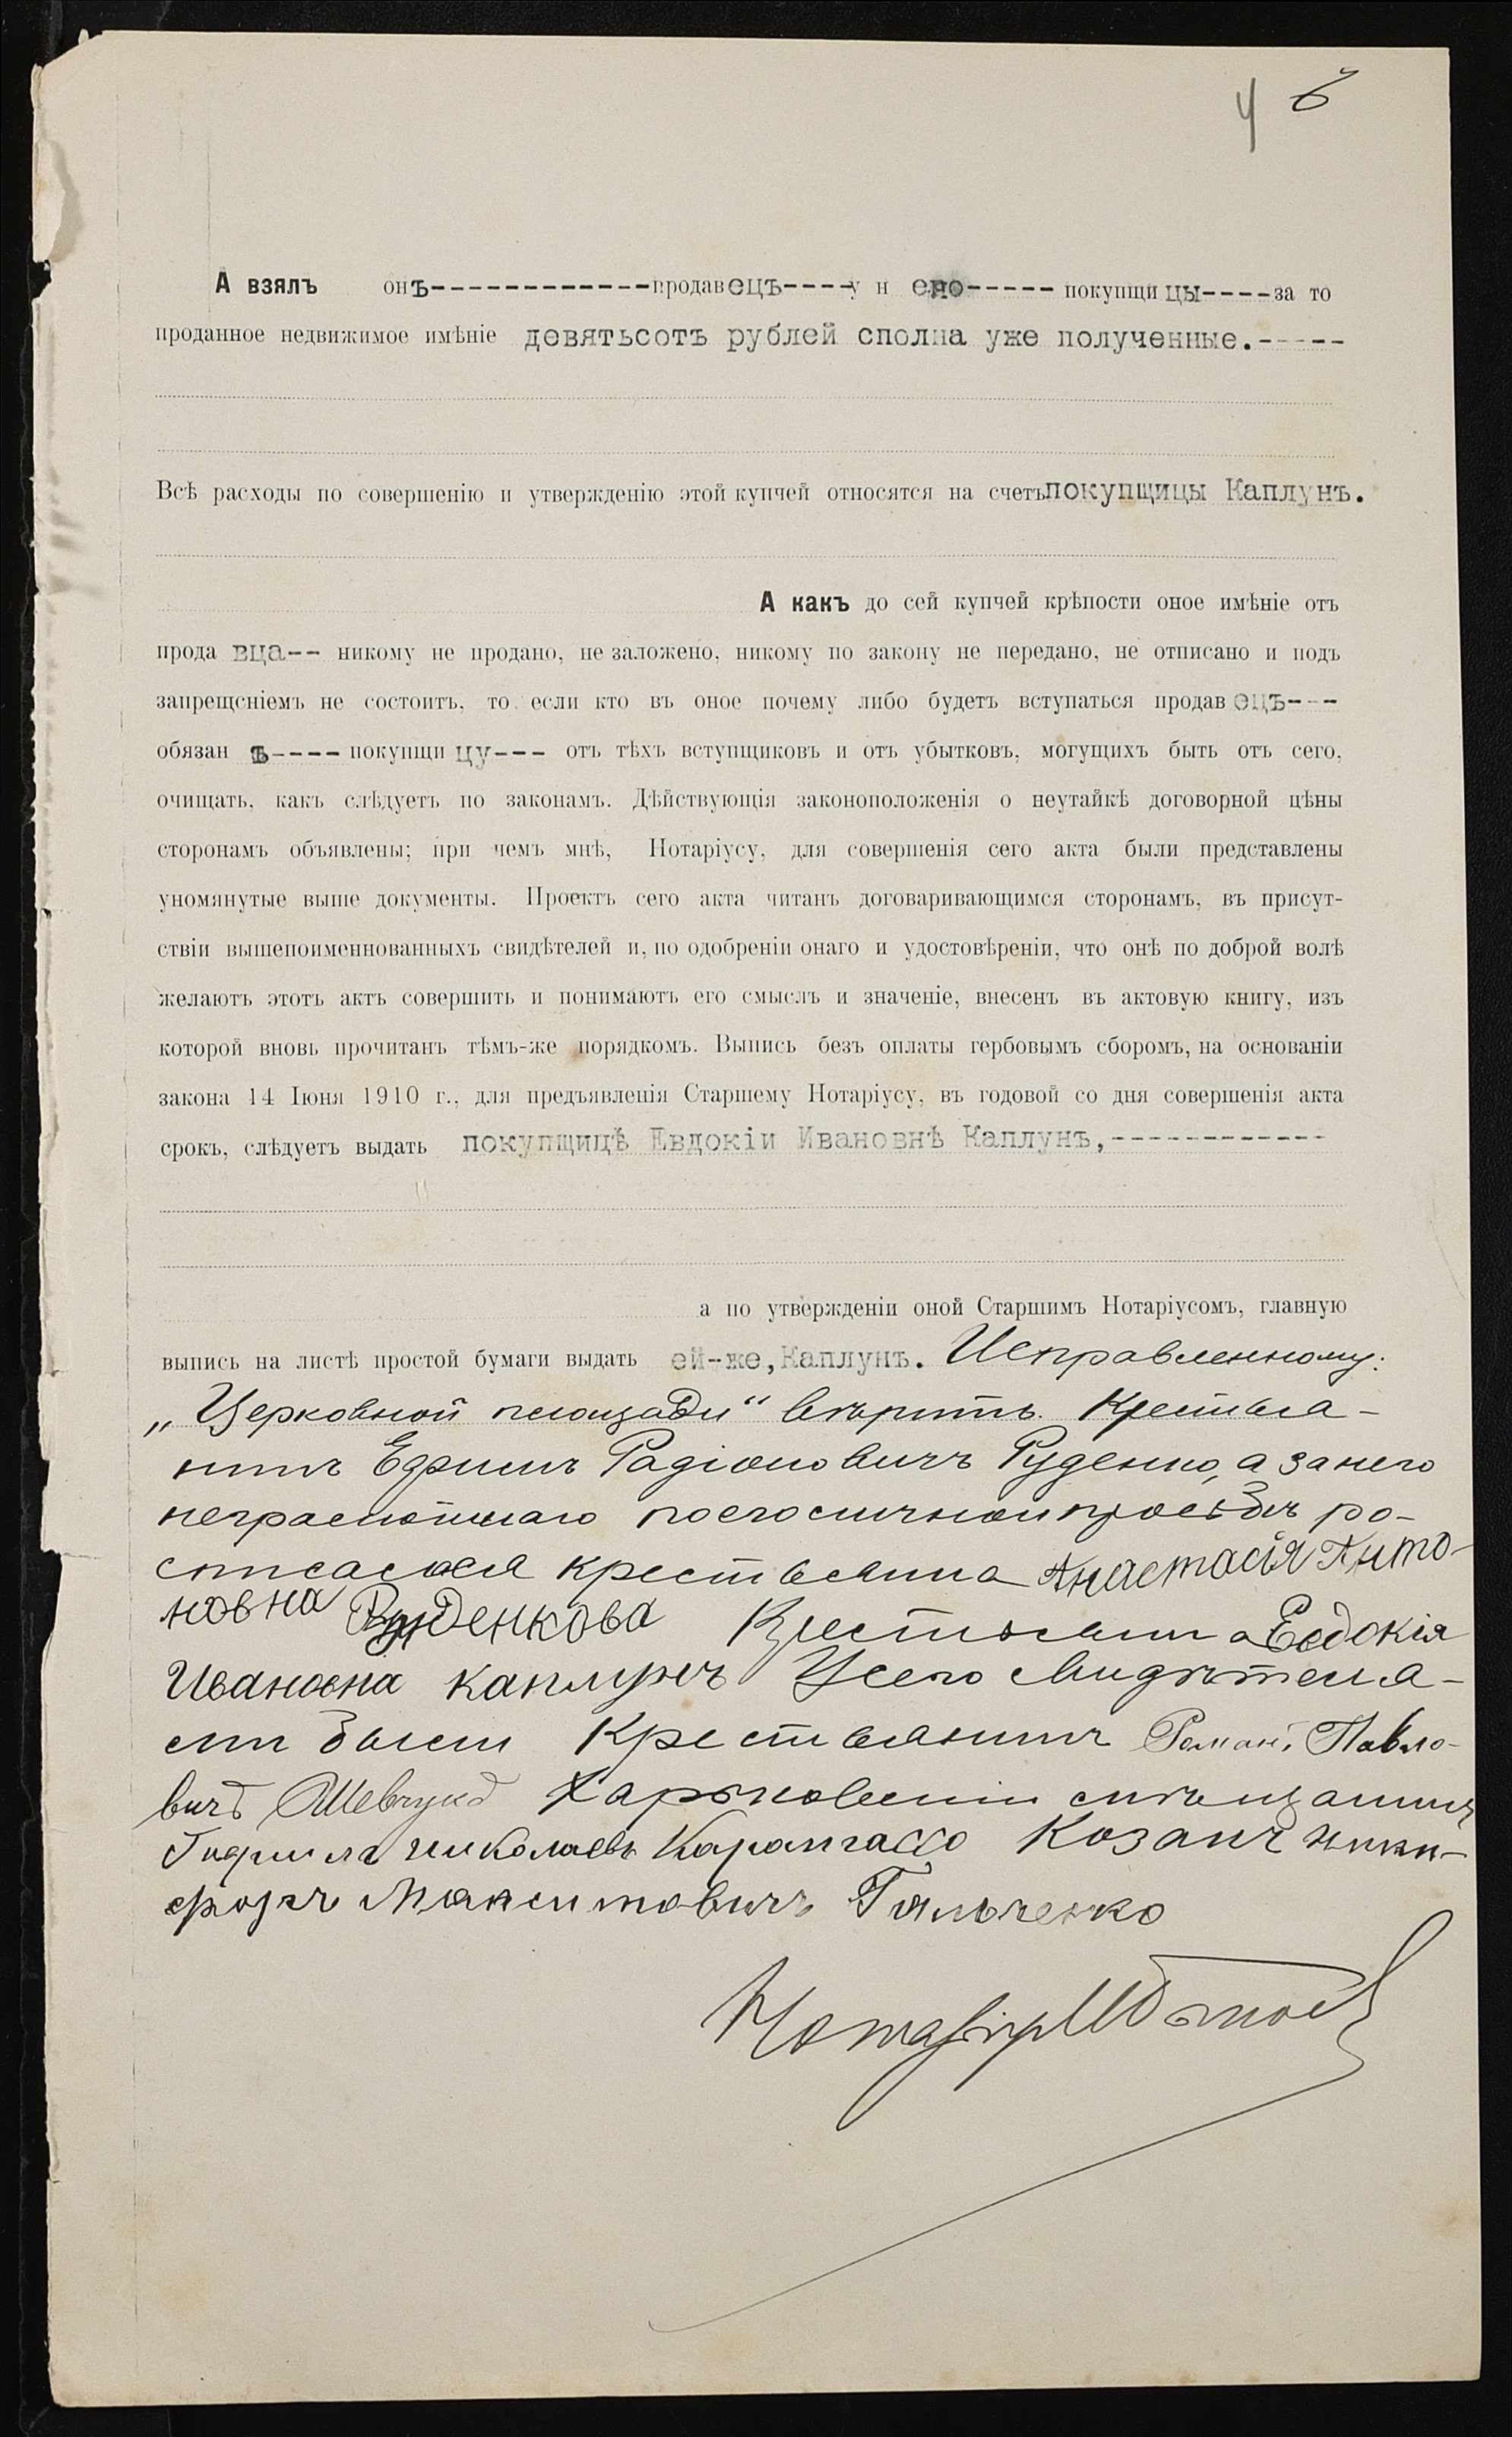 4 6
А взялъ онъ-------------продавецъ----у н ея------ покупщицы----за то
проданное недвижимое имѣніе девятьсотъ рублей сполна уже полученные.-----
Всѣ расходы по совершенію и утвержденію этой купчей относятся на счетъ покупщицы Каплунъ.
А какъ до сей купчей крѣпости оное имѣніе отъ
прода вца-- никому не продано, не заложено, никому по закону не передано, не отписано и подъ
запрещеніемъ не состоитъ, то если кто въ оное почему либо будетъ вступаться продав ецъ---
обязан ъ---- покупщи цу--- отъ тѣхъ вступщиковъ и отъ убытковъ, могущихъ быть отъ сего,
очищать, какъ слѣдуетъ по законамъ. Дѣйствующія законоположенія о неутайкѣ договорной цѣны
сторонамъ объявлены; при чемъ мнѣ, Нотаріусу, для совершенія сего акта были представлены
уномянутые выше документы. Проектъ сего акта читанъ договаривающимся сторонамъ, въ присут-
ствіи вышепоименнованныхъ свидѣтелей и, по одобреніи онаго и удостовѣреніи, что онѣ по доброй волѣ
желаютъ этотъ актъ совершить и понимаютъ его смыслъ и значеніе, внесенъ въ актовую книгу, изъ
которой вновь прочитанъ тѣмъ-же порядкомъ. Выпись безъ оплаты гербовымъ сборомъ, на основаніи
закона 14 Іюня 1910 г., для предъявленія Старшему Нотаріусу, въ годовой со дня совершенія акта
срокъ, слѣдуетъ выдать покупщицѣ Евдокіи Ивановнѣ Каплунъ,------------
а по утвержденіи оной Старшимъ Нотаріусомъ, главную
выпись на листѣ простой бумаги выдать ей-же, Каплунъ. Исправленному:
„Церковной площади“ вѣрить. Крестья-
нинъ Ефимъ Радіоновичъ Руденко, а за него
неграмотнаго по его личной просьбѣ ро-
списалася крестьянка Анастасія Анто-
новна Руденкова Крестьянка Евдокія
Ивановна Каплунъ У сего свидѣтеля-
ми были Крестьянинъ Романъ Павло-
вичъ Шевчукъ Харьковскій мѣщанинъ
Николаевъ Козакъ Ники-
форъ Максимовичъ Гальченко
Нотаріусъ